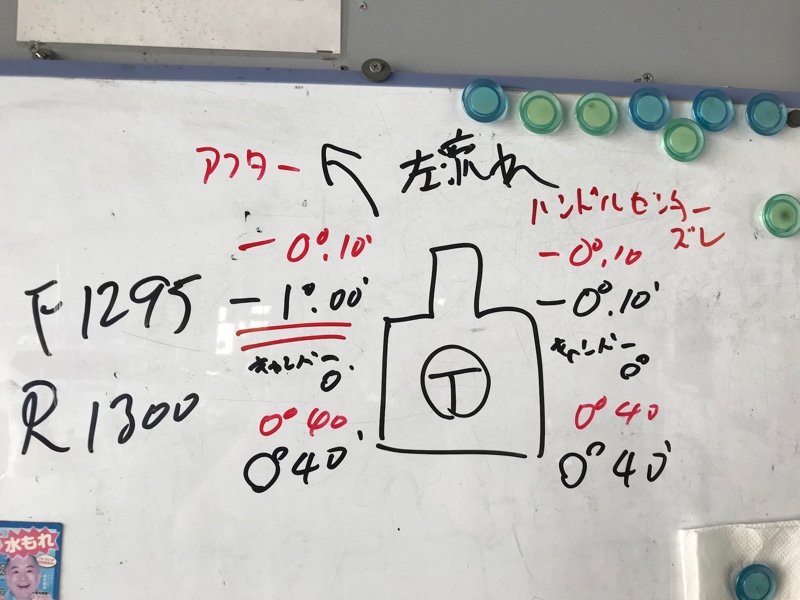 アフター
左流れ
ハンドルセンター
ズレ
-0°.10'
-0°.10
F1295
-1°.00'
-0°.10'
キャンバー
0°
キャンバー
0°
R1300
0°40
0°40
T
0°40'
0°40'
水もれ